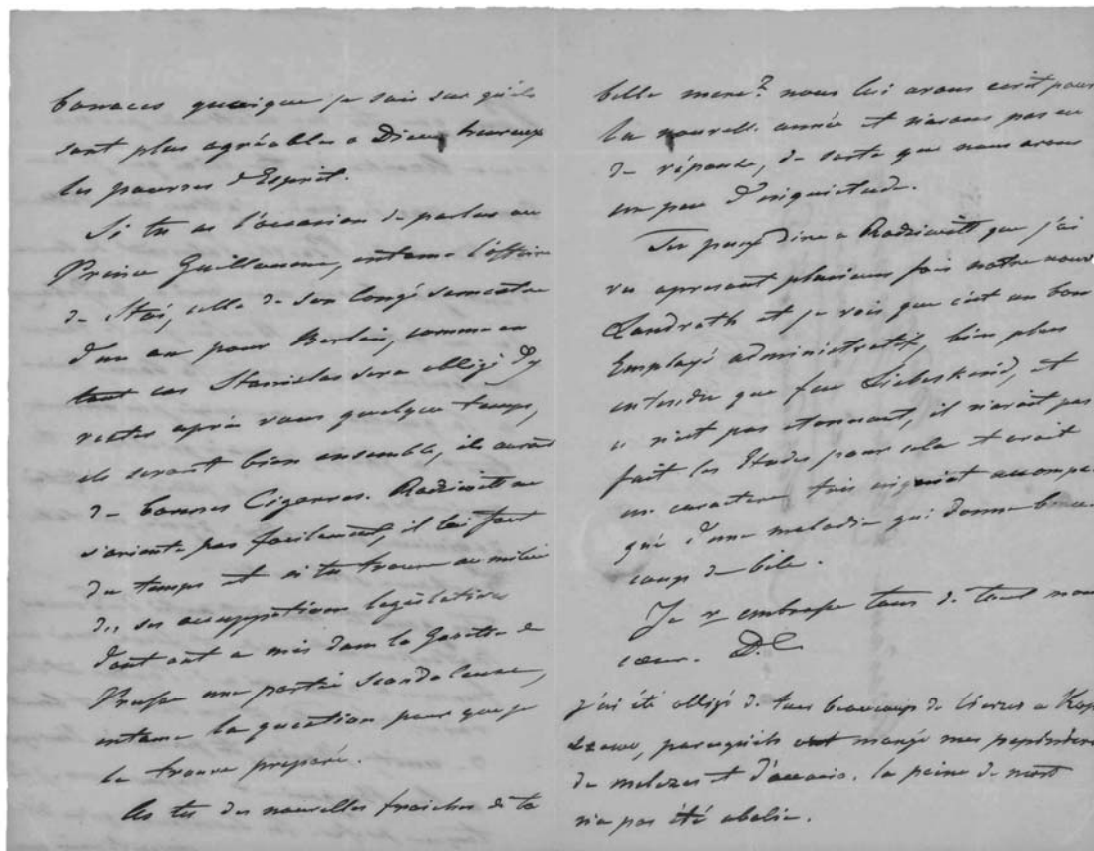 bonaces quoique je sais sur qu'ils
sont plus agréables a Dieu, heureux
les pauvres d'Esprit.
Si tu as l'occasion de parler au
Prince Guillaume, entame l'histoire
de Stas, celle de son congé semestre
d'un an pour Berlin, comme en
tout cas Stanislas sera obligé d'y
rester après vous quelque temps,
ils seront bien ensemble, ils auront
de bonnes Cigarres. Radziwill ne
s'oriente pas facilement, il lui faut
du temps et si tu trouve au milieu
de ses occuppations legislatives
dont ont a mis dans la Gazette de
Prusse une partie scandaleuse,
entame la question pour que je
le trouve preparé.
As tu des nouvelles fraiches de ta
belle mere? nous lui avons ecrit pour
la nouvelle année et n'avons pas eu
de réponse, de sorte que nous avons
un peu d'inquietude.
Tu peux dire a Radziwill que j'ai
vu apresant plusieurs fois notre nouv
Landrath et je vois que c'est un bon
Employé administratif, bien plus
entendu que feu Liebeskind, et
ce n'est pas etonnant, il n'avait pas
fait les Etudes pour cela et avait
un caractere tres inquiet accompa-
gné d'une maladie qui donne beau-
coup de bile.
Je v embrasse tous de tout mon
coeur. D.C
j'ai été obligé de tuer beaucoup de lievres a
parcequ'ils ont mangé mes pepinieres
de melezes et d'accacia. la peine de mort
n'a pas été abolie.